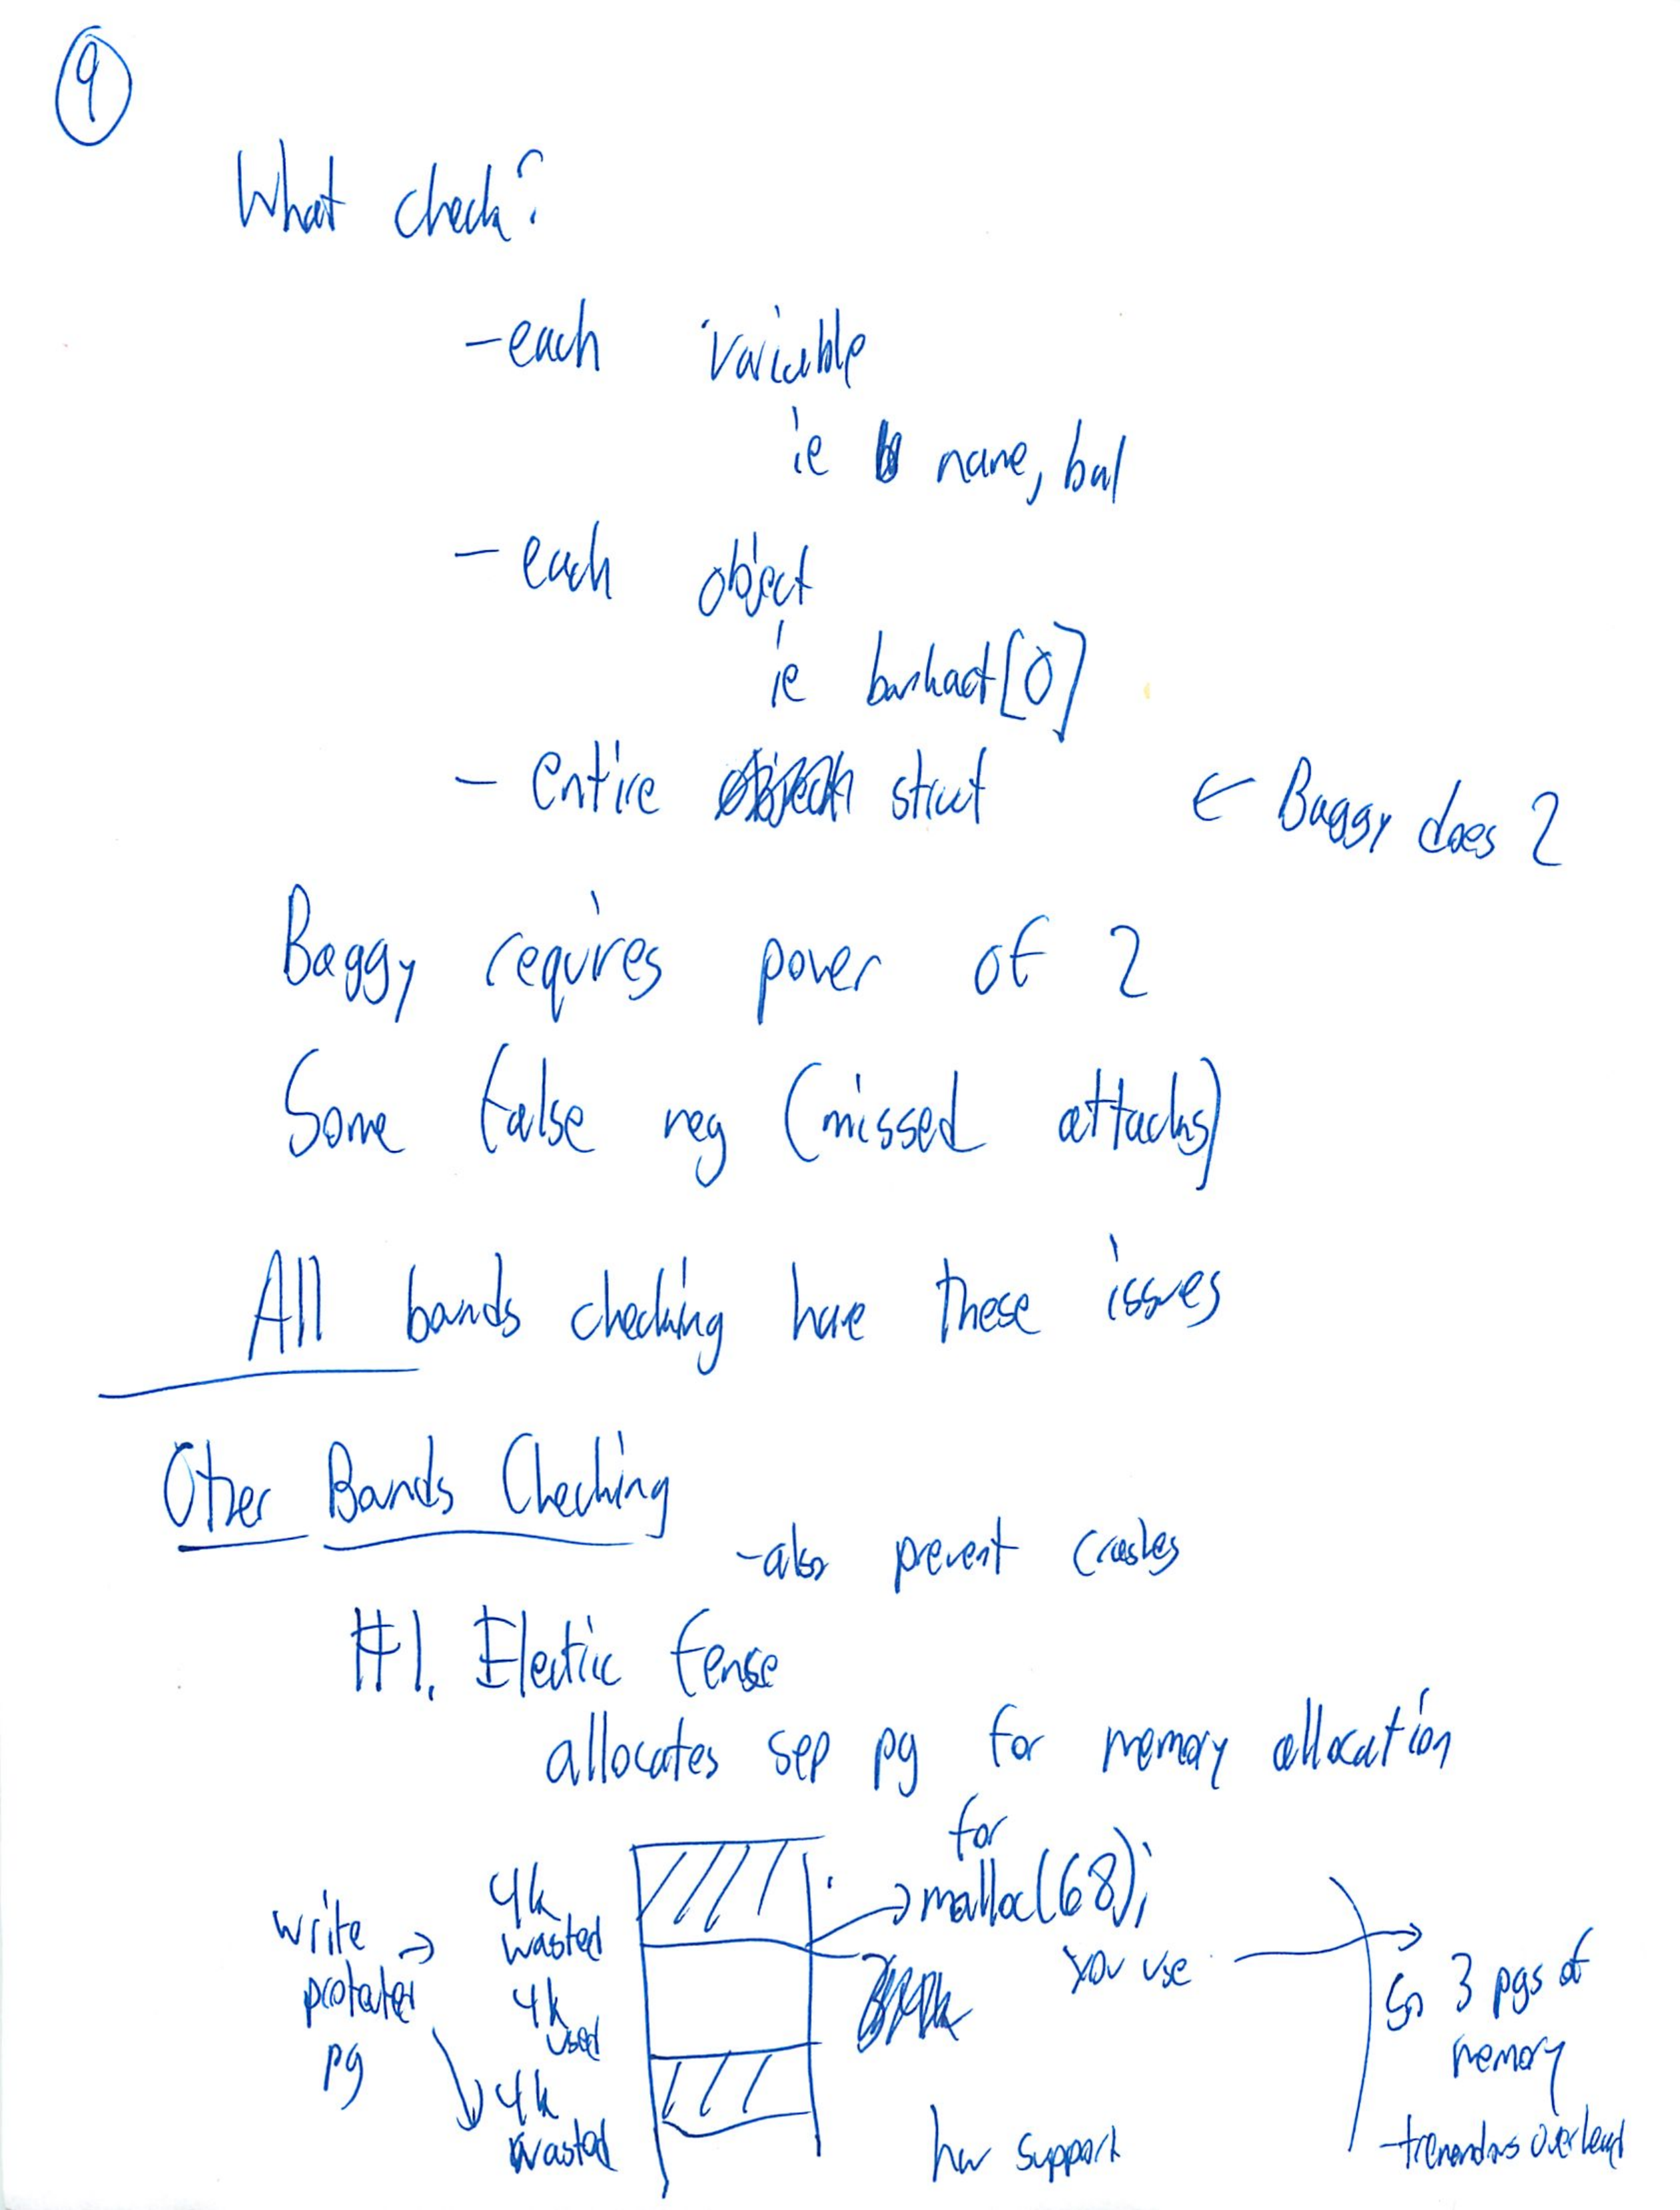 9
What check?
- each variable
ie name, bal
- each object
ie bankact[0]
- Entire struct ← Baggy does 2
Baggy requires power of 2
Some false neg (missed attacks)
All bounds checking have these issues
Other Bounds Checking
- also prevent crashes
#1. Electric fense
allocates sep pg for memory allocation
for
malloc(68);
4k
wasted
write
protected
pg
4k
used
you use
So 3 pgs of
memory
4k
wasted
hw support
- tremendous overhead